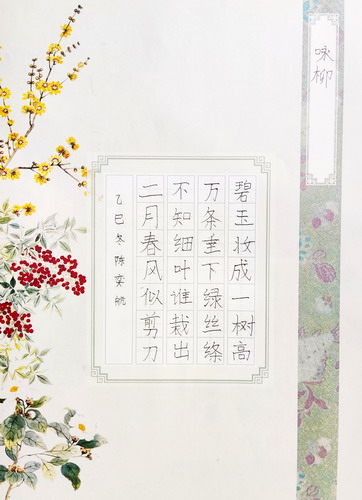 咏柳
碧玉妆成一树高
万条垂下绿丝绦
不知细叶谁裁出
二月春风似剪刀
乙巳冬陈奕航